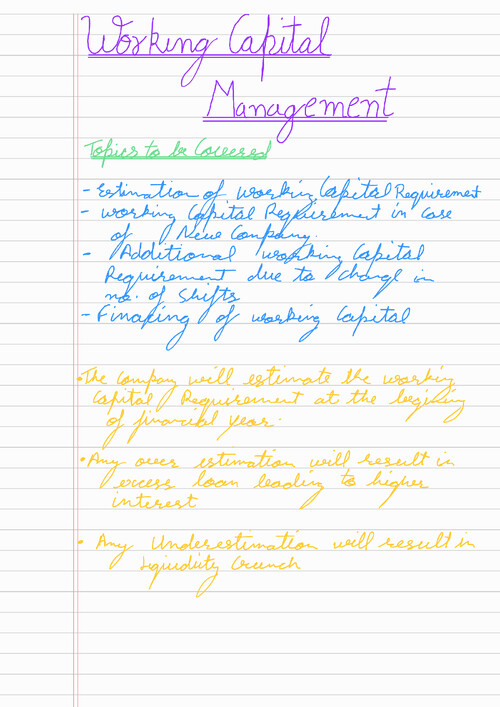 Working Capital
Management
Topics to be Covered
- Estimation of Working Capital Requirement
- Working Capital Requirement in Case
of New Company.
- Additional working Capital
Requirement due to change in
no. of Shifts
- Finaxing of working Capital
• The Company will estimate the working
Capital Requirement at the begining
of financial year.
• Any over estimation will result in
excess loan leading to higher
interest
• Any Underestimation will result in
Liquidity Crunch